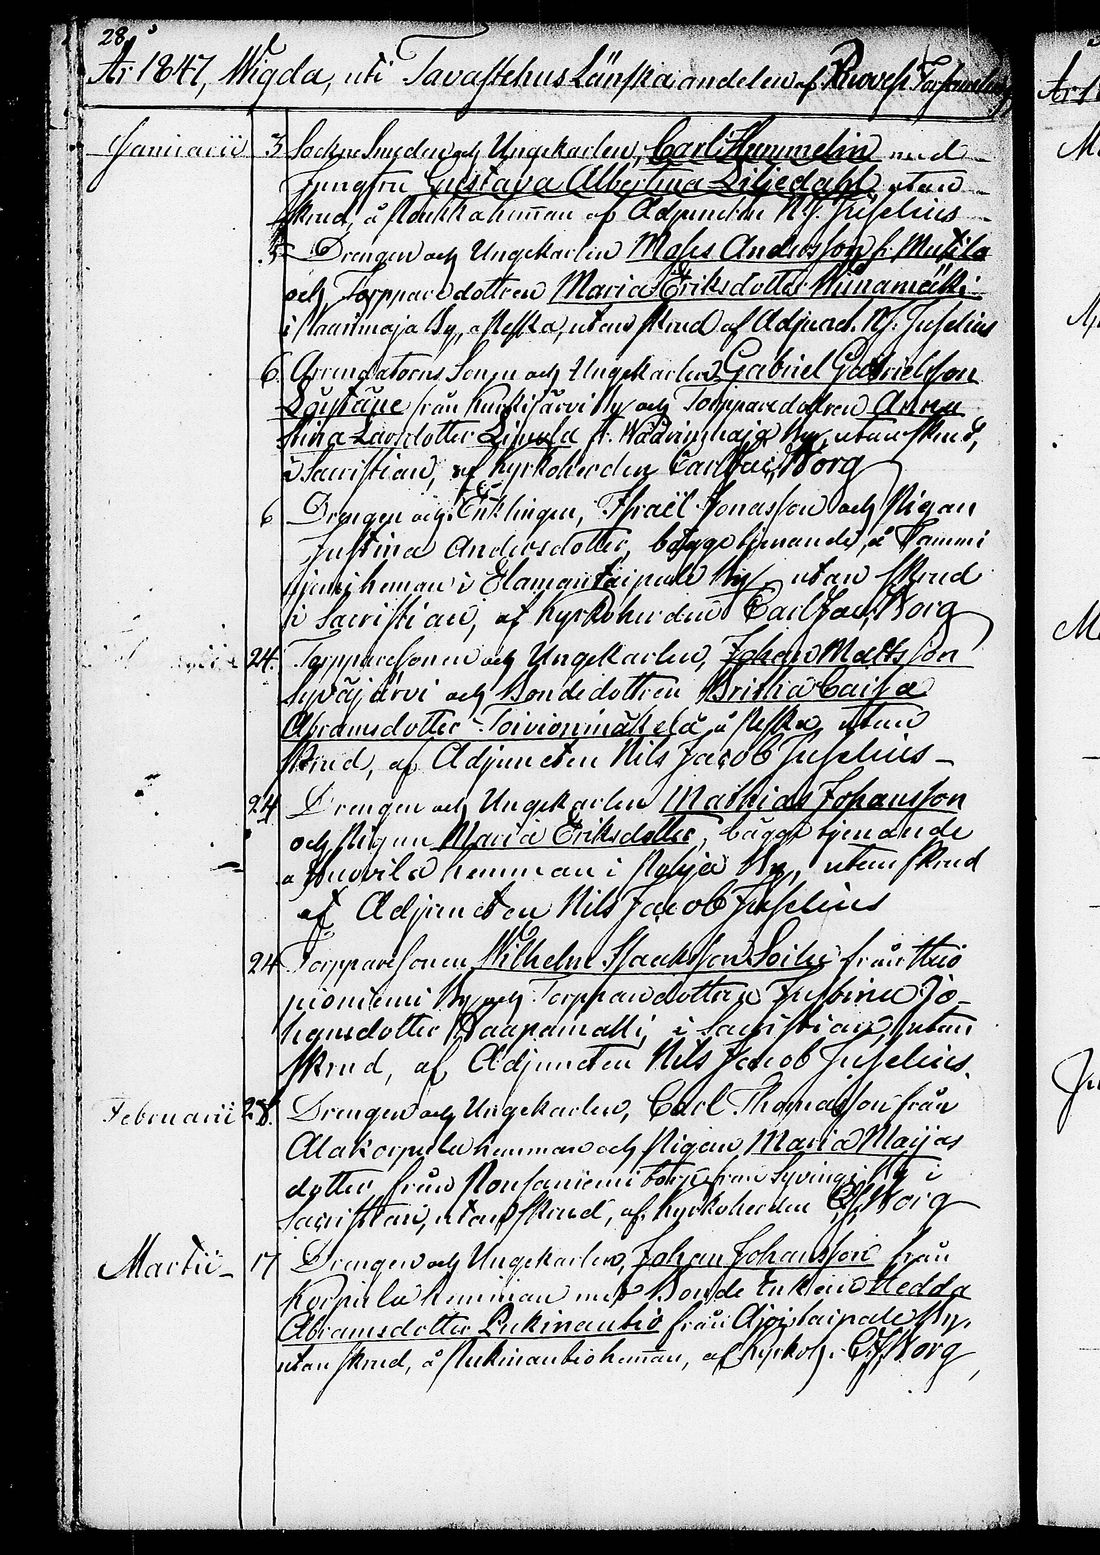 28.
År 1847, Wigda, uti Tavastehus Länska andelen af Ruovesi Församling
Januarii 3 Sockne Smeden och Ungekarlen, Carl Hummelin med
Jungfru Gustava Albertina Liljedahl, utan
skrud, å hemman af Adjuncten N. J. Juselius
5 Drengen och Ungekarlen Moses Andersson fr. Mutila
och Torppare dottren Maria Eriksdotter
i By, utan skrud af Adjunct. N. J. Juselius
6. Arrendatorns Sonen och Ungekarlen Gabriel Gabrielsson
från By och Torppare dottren Anna
Stina Larsdotter fr. Wäärinmaja By, utan skrud,
i Sacristian, af Kyrkoherden Carl Jac. Borg
6 Drengen och Enklingen, Israël Jonasson och Pigan
Justina Andersdotter, bägge tjenande, å Tammi
hemman i By utan skrud
i Sacristian, af Kyrkoherden Carl Jac. Borg
24. Torpparesonen och Ungekarlen, Johan Mattsson
Syväjärvi och Bondedottren Britha Caisa
Abramsdotter Toivionmäkelä, å utan
skrud, af Adjuncten Nils Jacob Juselius
24 Drengen och Ungekarlen Mathias Johansson
och Pigan Maria Eriksdotter, bägge tjenande
å hemman i By, utan skrud
af Adjuncten Nils Jacob Juselius
24 Torpparesonen Wilhelm Isaaksson från
By och Torppare dottren Jo-
hansdotter Haapamäki, i Sacristian, utan
skrud, af Adjuncten Nils Jacob Juselius.
Februarii 28. Drengen och Ungekarlen, Carl Thomasson från
Alakorpula hemman och Pigan Maria Maijas
dotter från torp från By i
Sacristian, utan skrud, af Kyrkoherden C. J. Borg
Martii 17 Drengen och Ungekarlen, Johan Johansson från
Korpula hemman med Bonde Enkan Hedda
Abramsdotter Lukinautio från By,
utan skrud, å hemman, af Kyrkoh. C. J. Borg